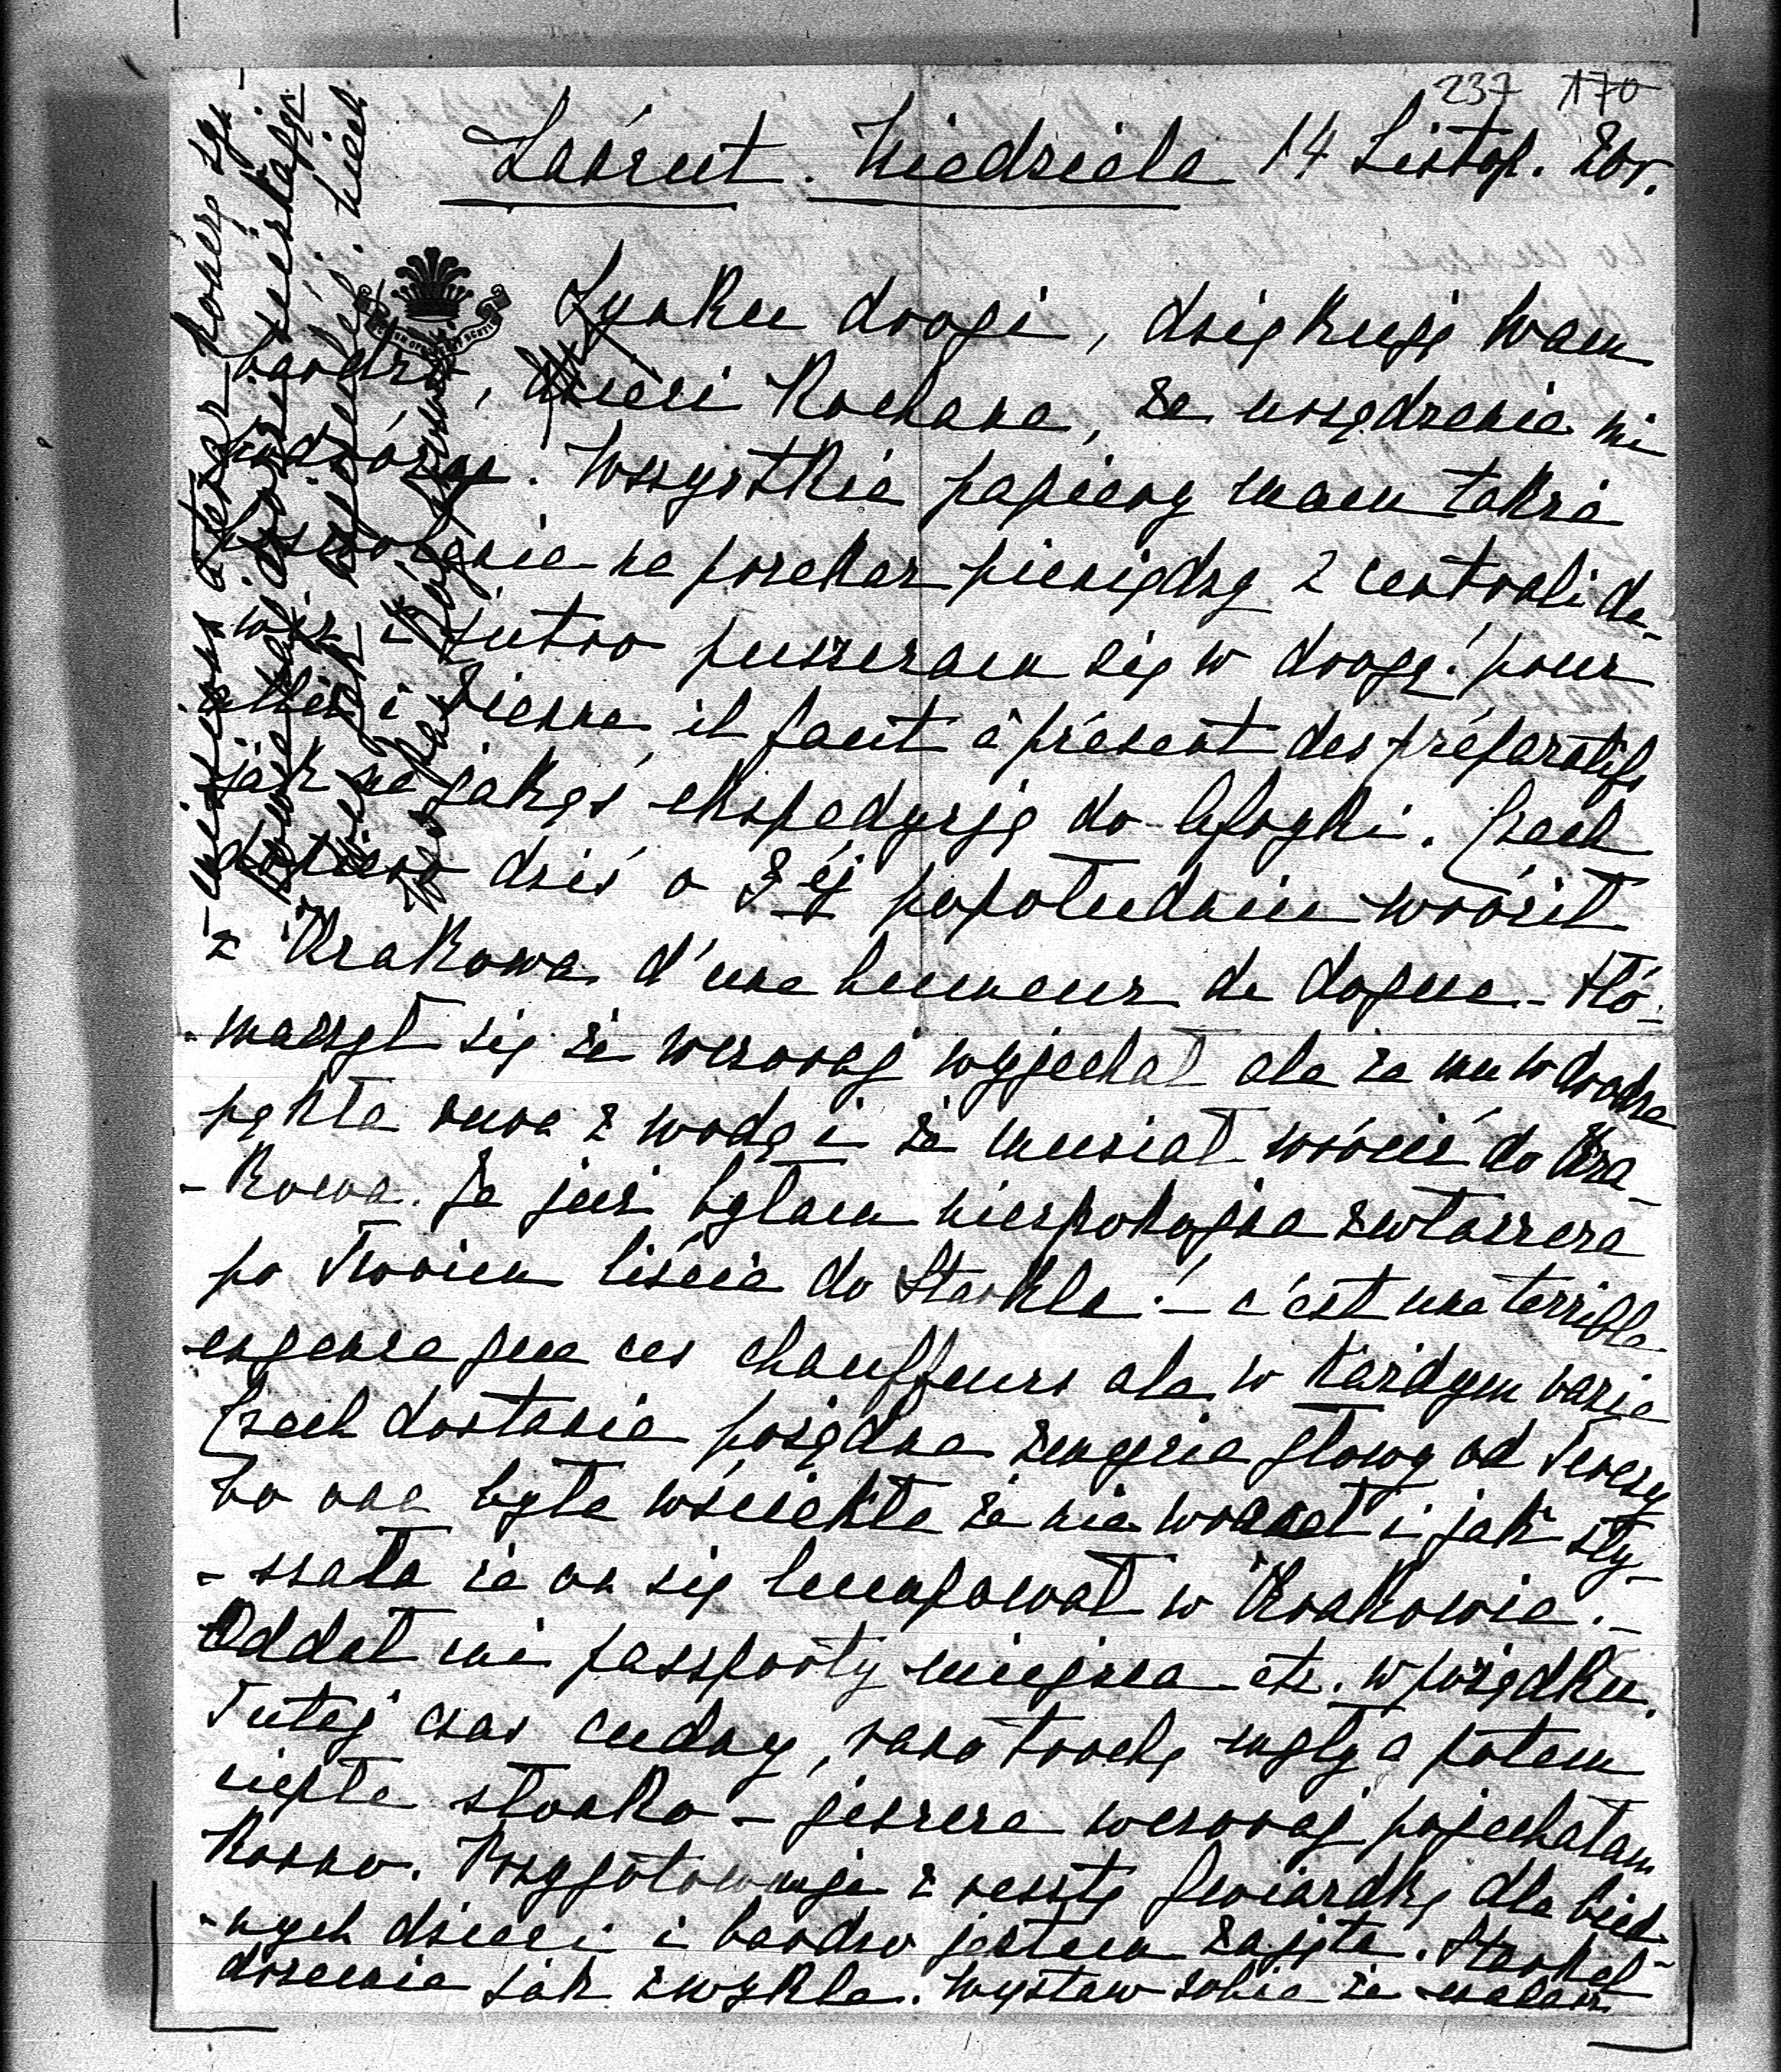 237 170
Łańcut. Niedziela 14 Listop. 20r.
Synku drogi, dziękuję Wam
bardzo, dzieci Kochane, za urządzenie mi
podróży. Wszystkie papiery mam także
pozwolenie na przekaz pieniędzy z centrali de-
-wiz i jutro puszczam się w drogę! pour
aller à Vienne il faut à présent des préparatifs
jak na jakąś ekspedycję do Afryki. Czech
dopiero dziś o 3éj popołudniu wrócił
z Krakowa d'une humeur de dogue - tłó-
-maczył się że wczoraj wyjechał ale że mu w drodze
pękła rura z wodą i że musiał wrócić do Kra-
-kowa. Ja już byłam niespokojna zwłaszcza
po Twoim liście do Starkla! - c'est une terrible
engeance que ces chauffeurs ale w każdym razie
Czech dostanie porządne zmycie głowy od Terezy
bo ona była wściekła że nie wracał i jak sły-
-szała że on się lumpował w Krakowie. -
Oddał mi passporty miejsca etc. w porządku.
Tutaj czas cudny, rano trochę mgły a potem
ciepłe słonko - jeszcze wczoraj pojechałam
konno. Przygotowuję z resztą gwiazdkę dla bied-
-nych dzieci i bardzo jestem zajęta. Starkel
doskonale jak zwykle. Wystaw sobie że